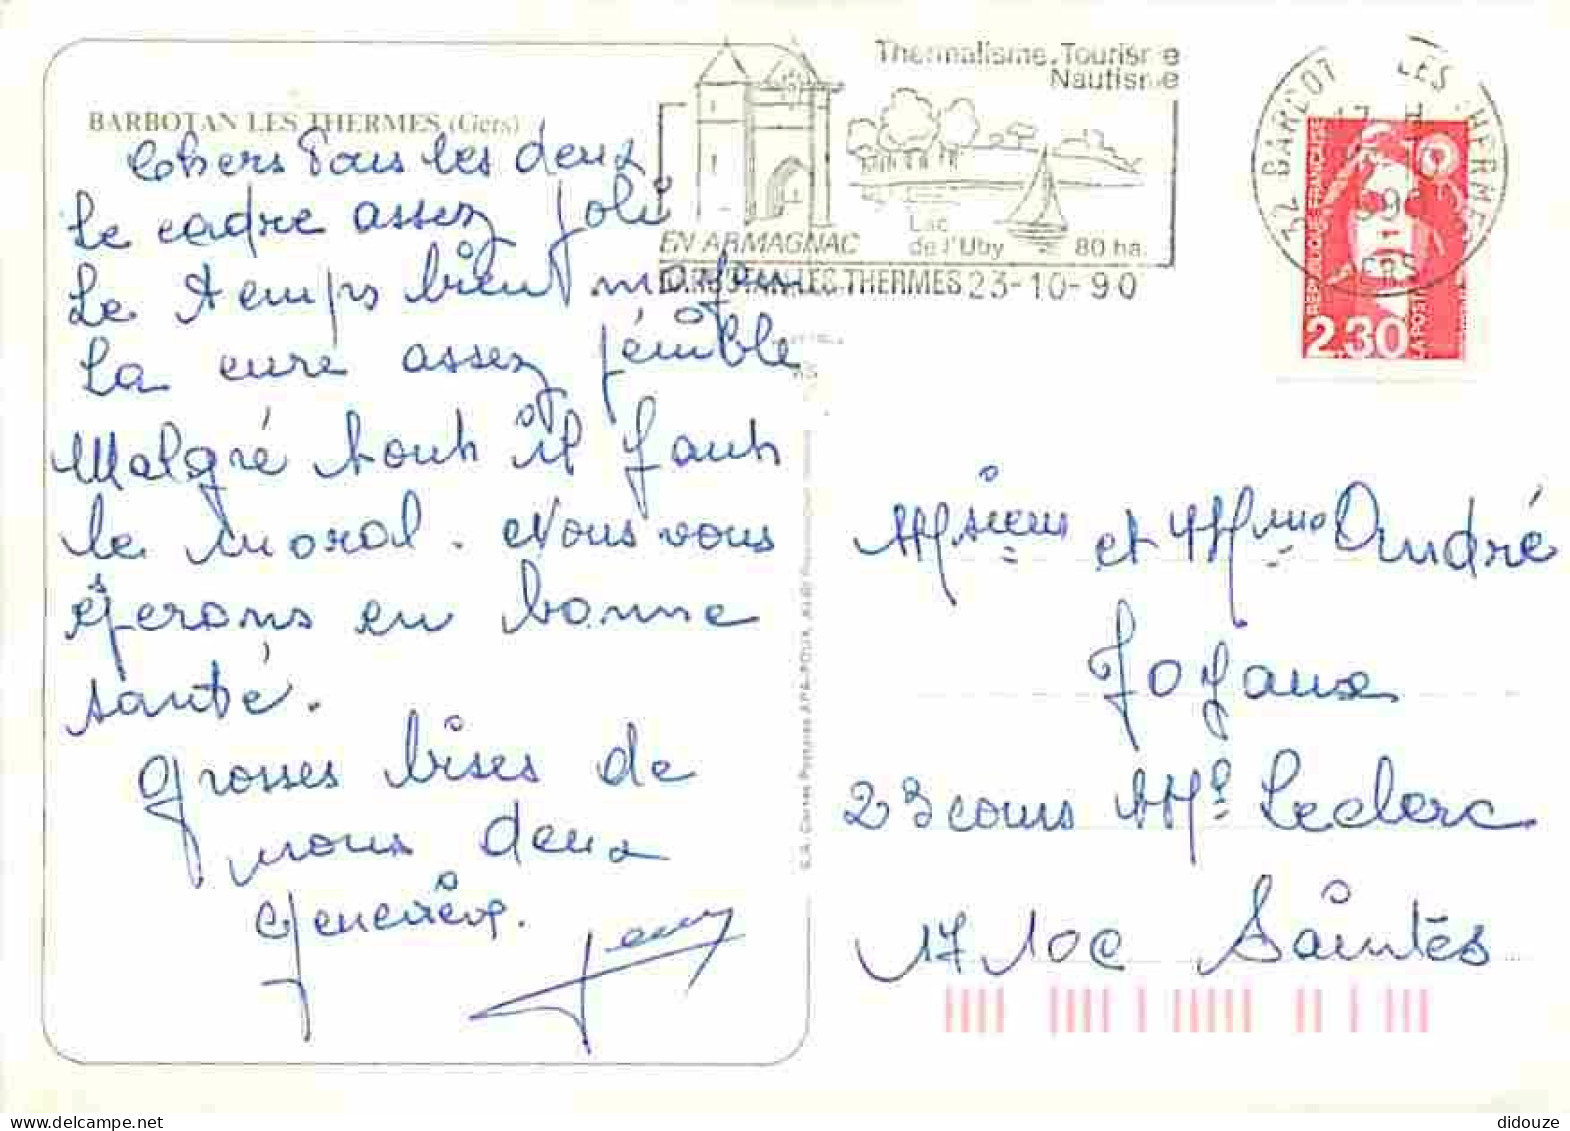 BARBOTAN LES THERMES (Gers)
Chers Tous les deux
Le cadre assez joli
Le temps bien moyen
La cure assez pénible
Malgré tout il faut
le moral. Nous vous
éperons en bonne
santé.
Grosses bises de
nous deux
Geneviève.
Thermalisme, Tourisme
Nautisme
EN ARMAGNAC
Lac
de l'Uby
80 ha.
BARBOTAN-LES-THERMES 23-10-90
32 BARBOTAN LES THERMES
GERS
REPUBLIQUE FRANÇAISE
2,30
LA POSTE
Msieur et Mme André
Joyaux
23 cours Mal Leclerc
17100 Saintes
didouze